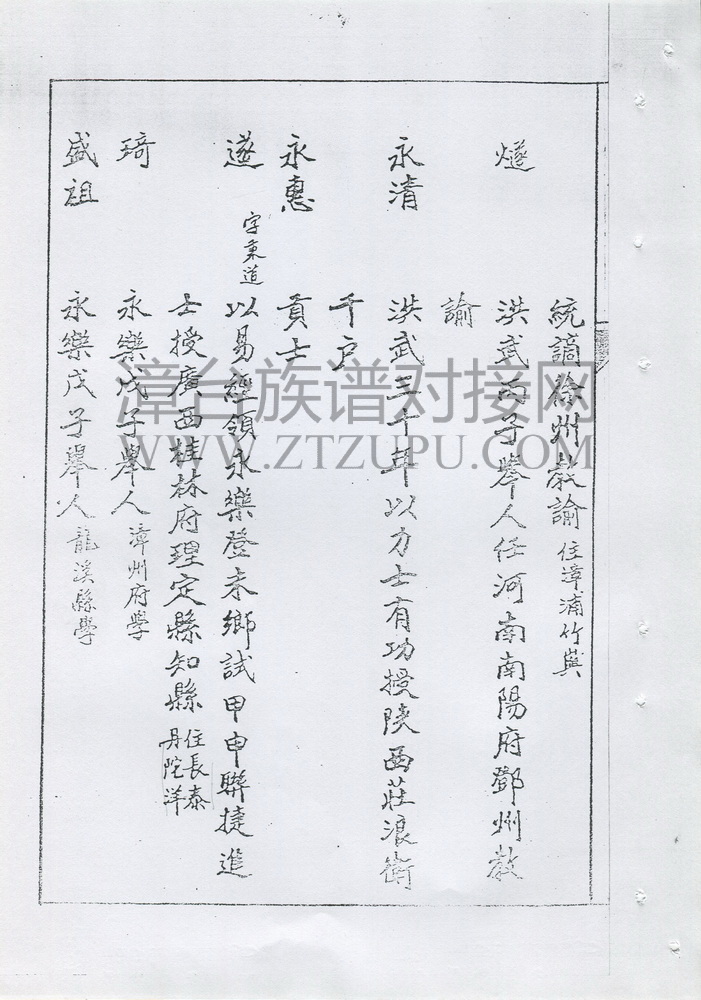 統謫徐州教諭 住漳浦竹㠘
燧 洪武丙子舉人任河南南陽府鄧州教
諭
永清 洪武三十年以力士有功授陝西莊浪衛
千戶
永惠 貢士
遂 字秉道 以易經領永樂登未鄉試甲申聯捷進
士授廣西桂林府理定縣知縣 住長泰丹陀洋
琦 永樂戊子舉人 漳州府學
盛祖 永樂戊子舉人 龍溪縣學
漳台族谱对接网
WWW.ZTZUPU.COM